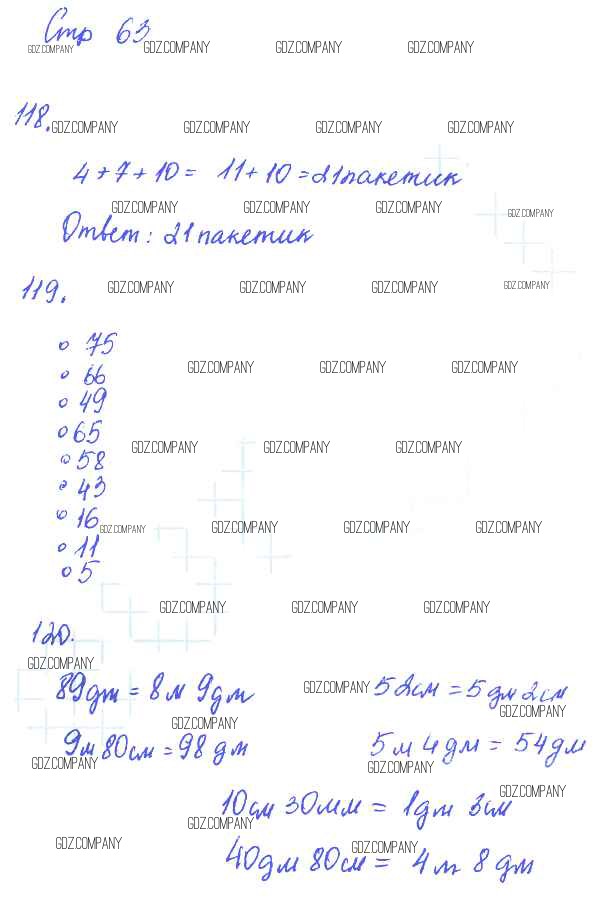 Стр 63
GDZ.COMPANY GDZ.COMPANY GDZ.COMPANY GDZ.COMPANY
118.
GDZ.COMPANY GDZ.COMPANY GDZ.COMPANY GDZ.COMPANY
4 + 7 + 10 = 11 + 10 = 21 пакетик
GDZ.COMPANY GDZ.COMPANY GDZ.COMPANY GDZ.COMPANY
Ответ: 21 пакетик
119.
GDZ.COMPANY GDZ.COMPANY GDZ.COMPANY GDZ.COMPANY
75
GDZ.COMPANY GDZ.COMPANY GDZ.COMPANY
66
49
65
GDZ.COMPANY GDZ.COMPANY GDZ.COMPANY
58
43
16
GDZ.COMPANY GDZ.COMPANY GDZ.COMPANY GDZ.COMPANY
11
5
GDZ.COMPANY GDZ.COMPANY GDZ.COMPANY
120.
GDZ.COMPANY
89дм = 8 м 9дм GDZ.COMPANY 52см = 5 дм 2см
GDZ.COMPANY GDZ.COMPANY
9м 80см = 98 дм 5 м 4 дм = 54дм
GDZ.COMPANY GDZ.COMPANY
GDZ.COMPANY
10см 30мм = 1дм 3см
GDZ.COMPANY
GDZ.COMPANY GDZ.COMPANY
40дм 80см = 4 м 8 дм